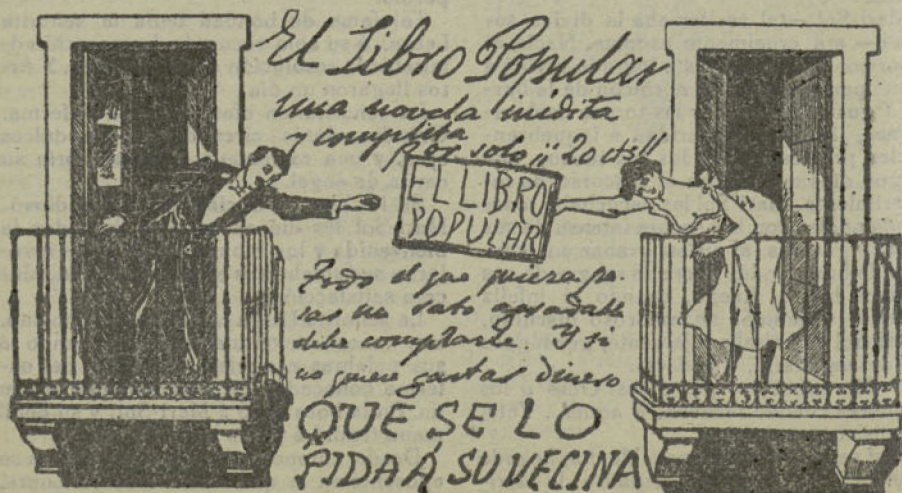 El Libro Popular
una novela inedita
y completa
por solo ¡¡ 20 cts!!
EL LIBRO
POPULAR
Todo el que quiera pa-
sar un rato agradable
debe comprarle. Y si
no quiere gastar dinero
QUE SE LO
PIDA Á SU VECINA